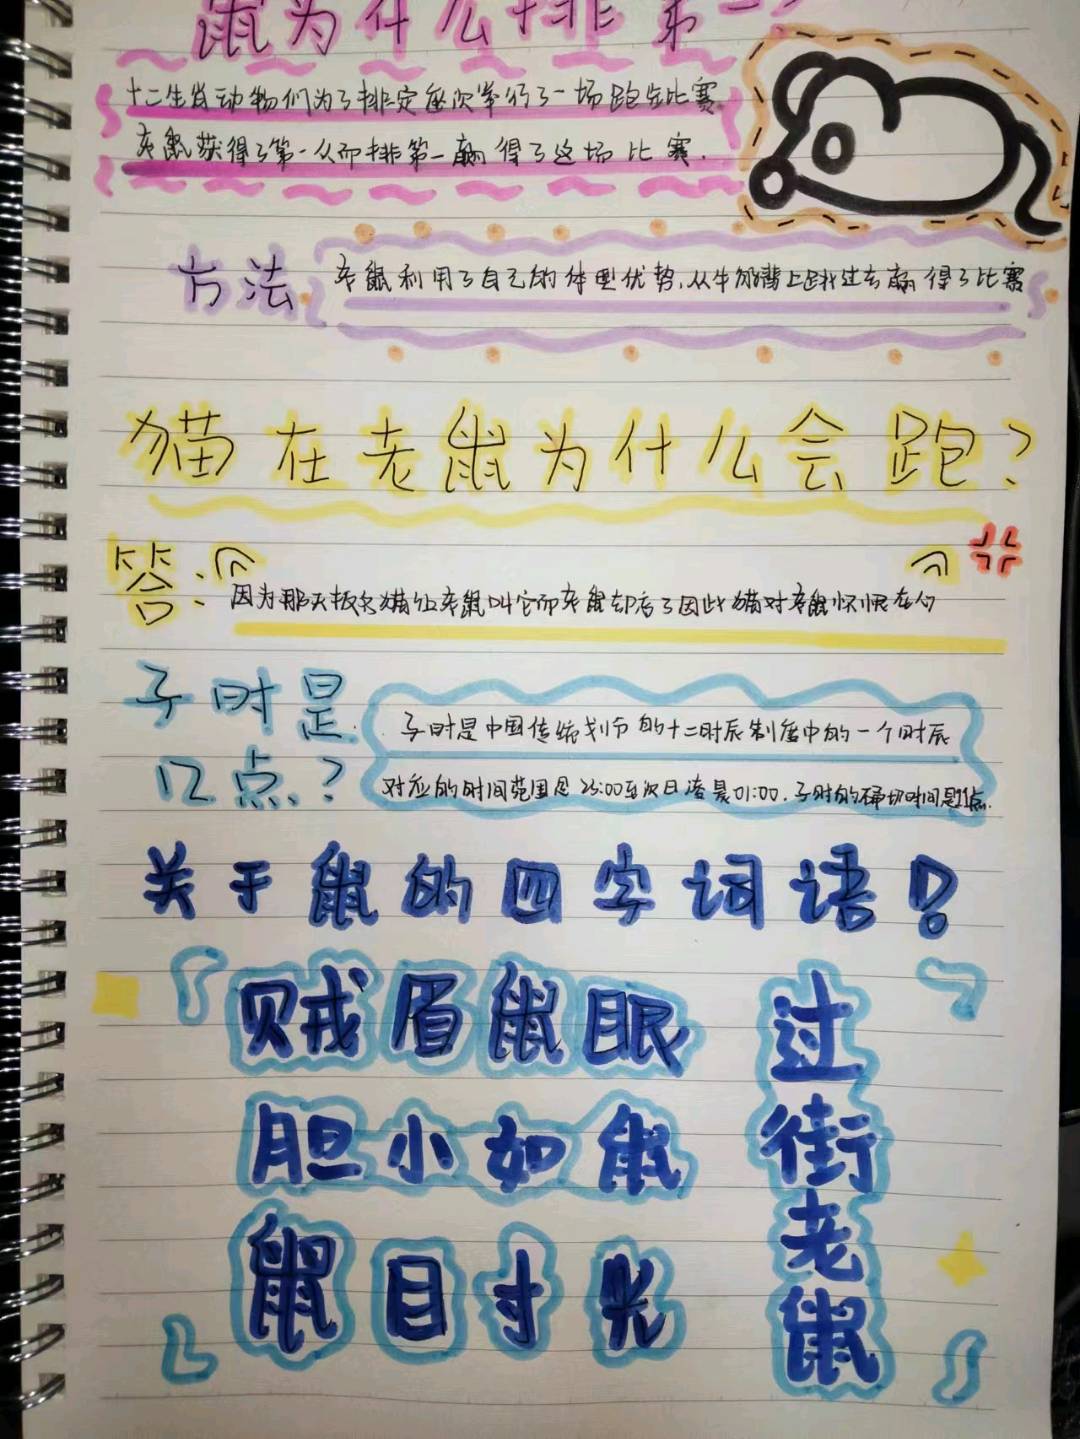 鼠为什么排第一?
十二生肖动物们为了排定座次举行了一场跑步比赛
老鼠获得了第一从而排第一赢得了这场比赛.
方法.
老鼠利用了自己的体型优势,从牛的背上跳过去赢得了比赛
猫在老鼠为什么会跑?
答:
因为那天报名猫让老鼠叫它而老鼠却忘了因此猫对老鼠怀恨在心
子时是
几点?
子时是中国传统划分的十二时辰制度中的一个时辰
对应的时间范围是23:00至次日凌晨01:00.子时的确切时间是11点.
关于鼠的四字词语!
『贼眉鼠眼
胆小如鼠
鼠目寸光
过街老鼠』